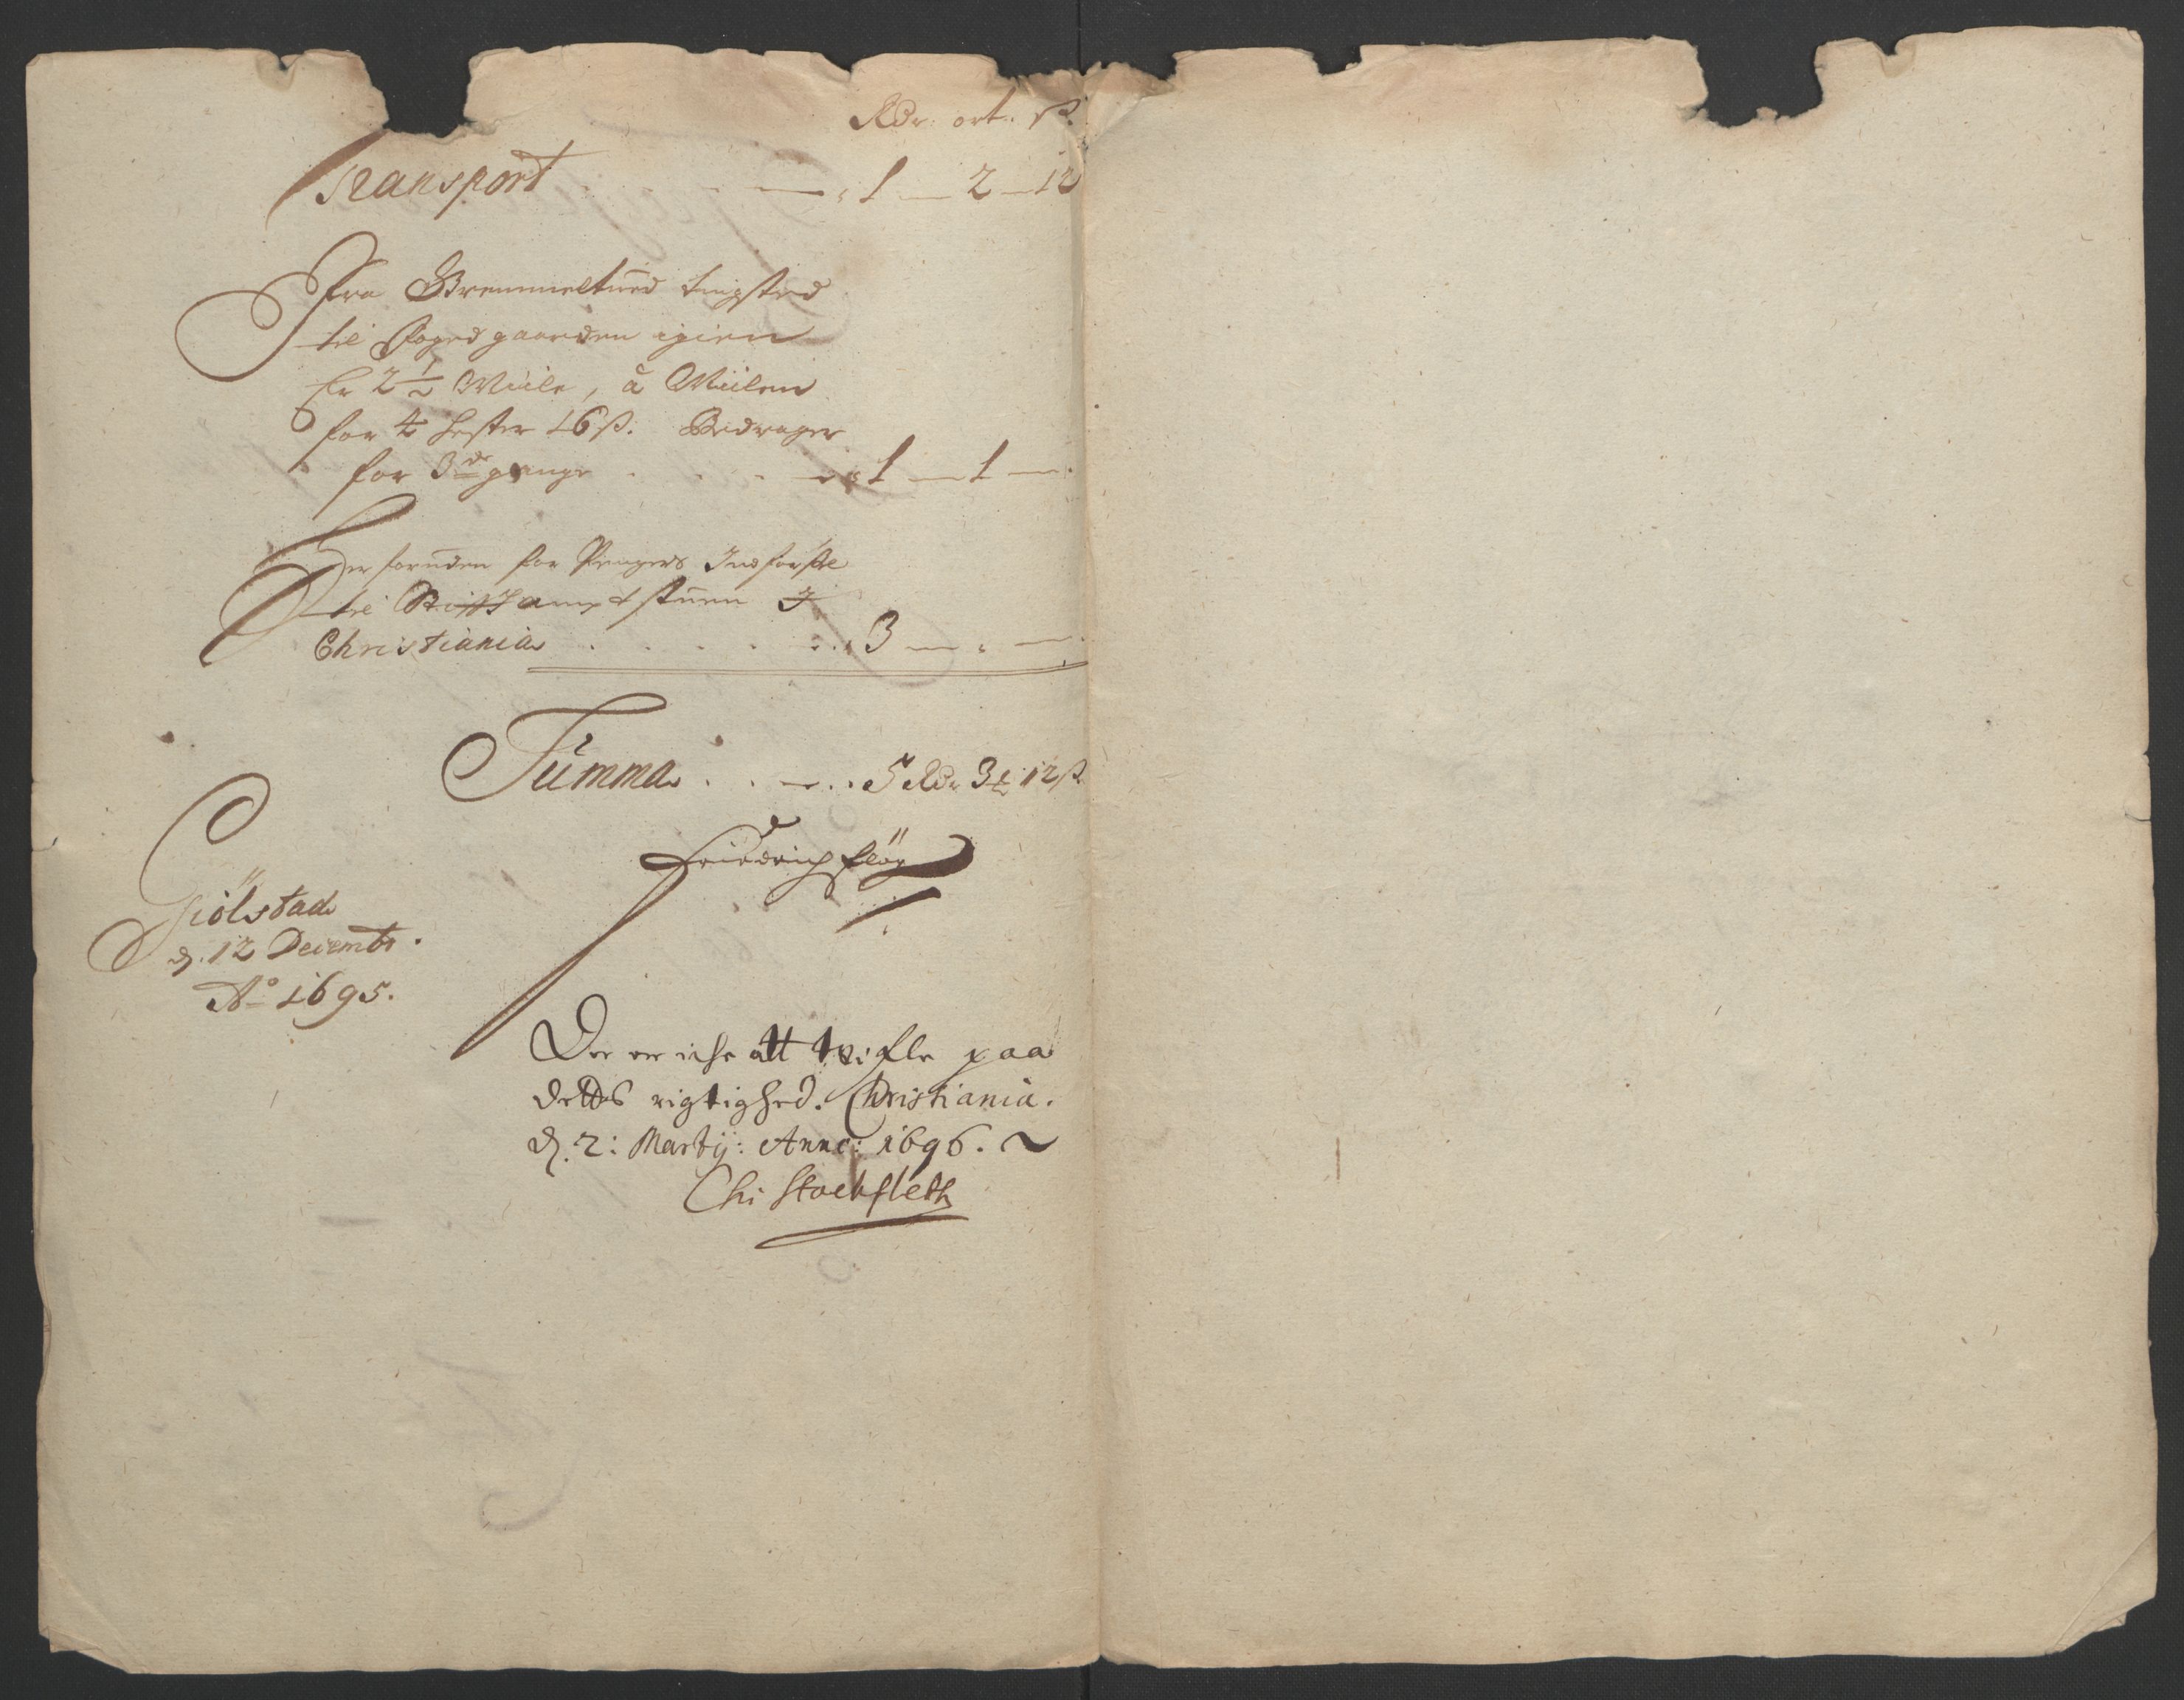 Rdr. ort. ß.
Transport . . . — 1 — 2 — 12
Fra Gremmeltued tingsted
til Fogedgaarden igien
Er 2 1/2 Miile, à Miilen
for 4 hester 16 ß. Bedrager
for 3de gange . . . — 1 — 1 —
Herforuden for Penges Indførsle
til Stifft Ampt stuen I
Christiania . . . . . 3 — " —
Summa . . — . . 5 Rdr 3 ort 12 ß.
Friedrich
Giölstad
d. 12 Decembr.
Ao 1695.
Der er iche att tvifle paa
dettes rigtighed. Christiania.
d. 2: Martij: Anno: 1696.
Chr Stockfleth